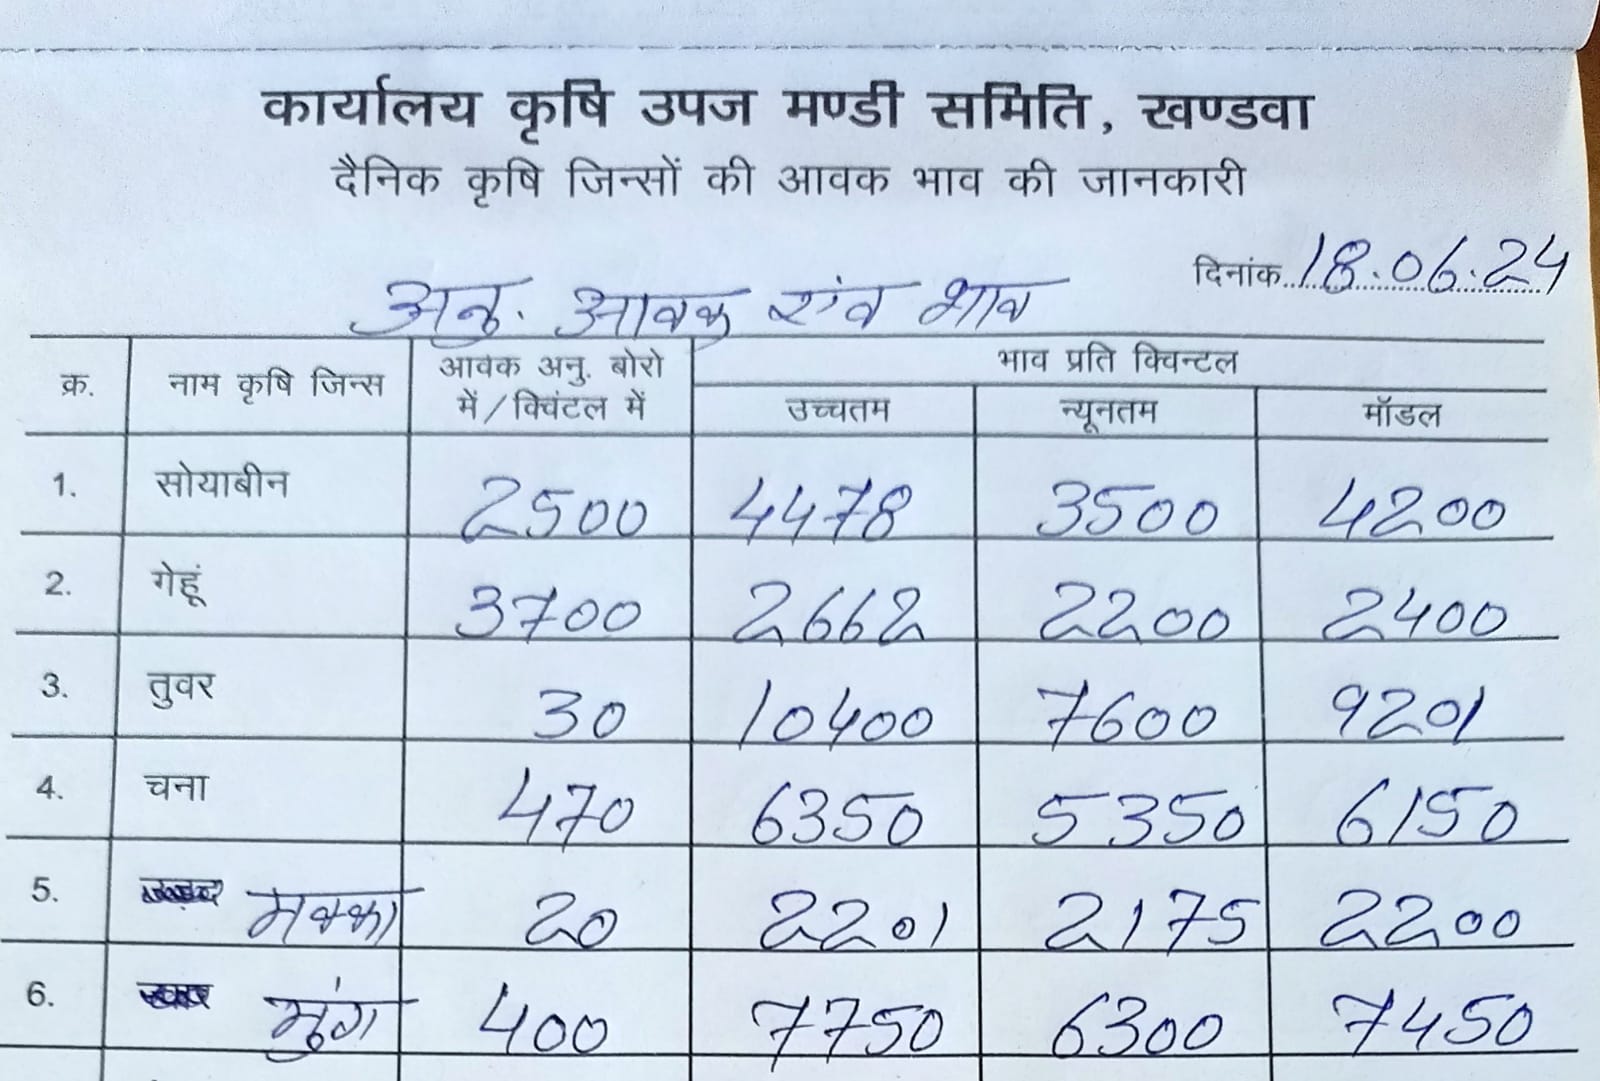 कार्यालय कृषि उपज मण्डी समिति, खण्डवा
दैनिक कृषि जिन्सों की आवक भाव की जानकारी
दिनांक 18.06.24
अनु. आवक एंव भाव
क्र. नाम कृषि जिन्स आवक अनु. बोरो में/क्विंटल में भाव प्रति क्विन्टल
उच्चतम न्यूनतम मॉडल
1. सोयाबीन 2500 4478 3500 4200
2. गेहूं 3700 2662 2200 2400
3. तुवर 30 10400 7600 9201
4. चना 470 6350 5350 6150
5. मक्का 20 2201 2175 2200
6. मुंग 400 7750 6300 7450